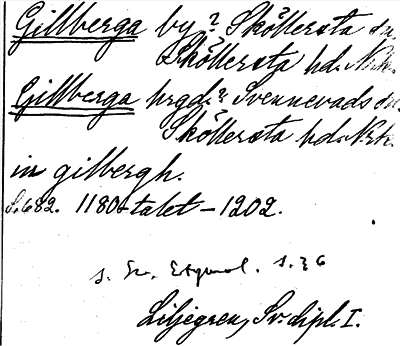 Gillberga by? Sköllersta sn.
Sköllersta hd. Nrk.
Gillberga hrgd.? Svennevads sn.
Sköllersta hd. Nrk.
in gilbergh.
S. 682. 1180-talet – 1202.
s. En. s. 36
Liljegren, Sv. dipl. I.